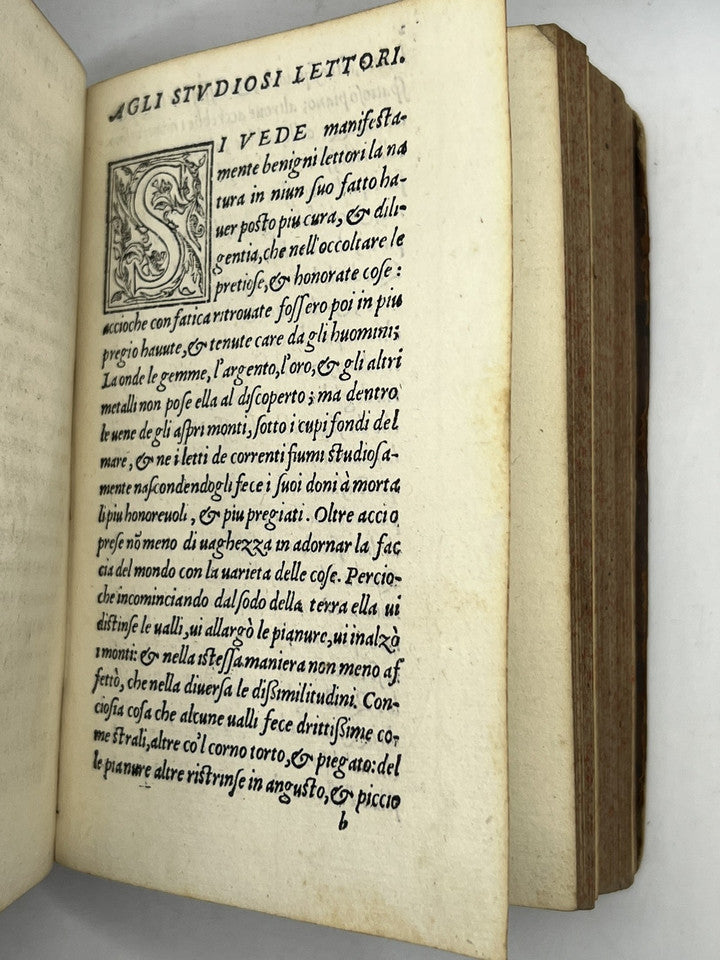 AGLI STVDIOSI LETTORI.
SI VEDE manifesta-
mente benigni lettori la na
tura in niun suo fatto ha-
uer posto piu cura, & dili-
gentia, che nell'occoltare le
pretiose, & honorate cose :
accioche con fatica ritrouate fossero poi in piu
pregio hauute, & tenute care da gli huomini;
La onde le gemme, l'argento, l'oro, & gli altri
metalli non pose ella al discoperto ; ma dentro
le uene de gli aspri monti, sotto i cupi fondi del
mare, & ne i letti de correnti fiumi studiosa-
mente nascondendogli fece i suoi doni à morta
li piu honoreuoli, & piu pregiati. Oltre accio
prese nõ meno di uaghezza in adornar la fac
cia del mondo con la uarieta delle cose. Percio-
che incominciando dal sodo della terra ella ui
distinse le ualli, ui allargò le pianure, ui inalzò
i monti: & nella istessa maniera non meno af
fettò, che nella diuersa le dissimilitudini. Con-
ciosia cosa che alcune ualli fece drittissime co-
me strali, altre co'l corno torto, & piegato: del
le pianure altre ristrinse in angusto, & piccio
b